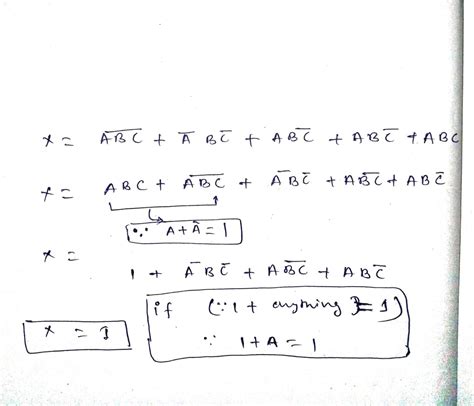 x = \overline{ABC} + \overline{A} B \overline{C} + A \overline{BC} + A B \overline{C} + A B C
x = A B C + \overline{ABC} + \overline{A} B \overline{C} + A \overline{BC} + A B \overline{C}
∵ A + \overline{A} = 1
x =
1 + \overline{A} B \overline{C} + A \overline{BC} + A B \overline{C}
x = 1
if (∵ 1 + anything = 1)
∵ 1 + A = 1